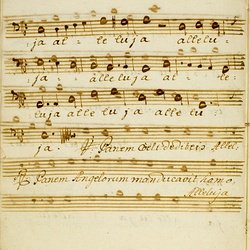 ja al - le lu ja allelu -
ja. alleluja al - le -
luja alle lu ja alle lu -
ja. V. Panem Celi dedit eis Allel.
R. Panem Angelorum manducavit homo.
Alleluja